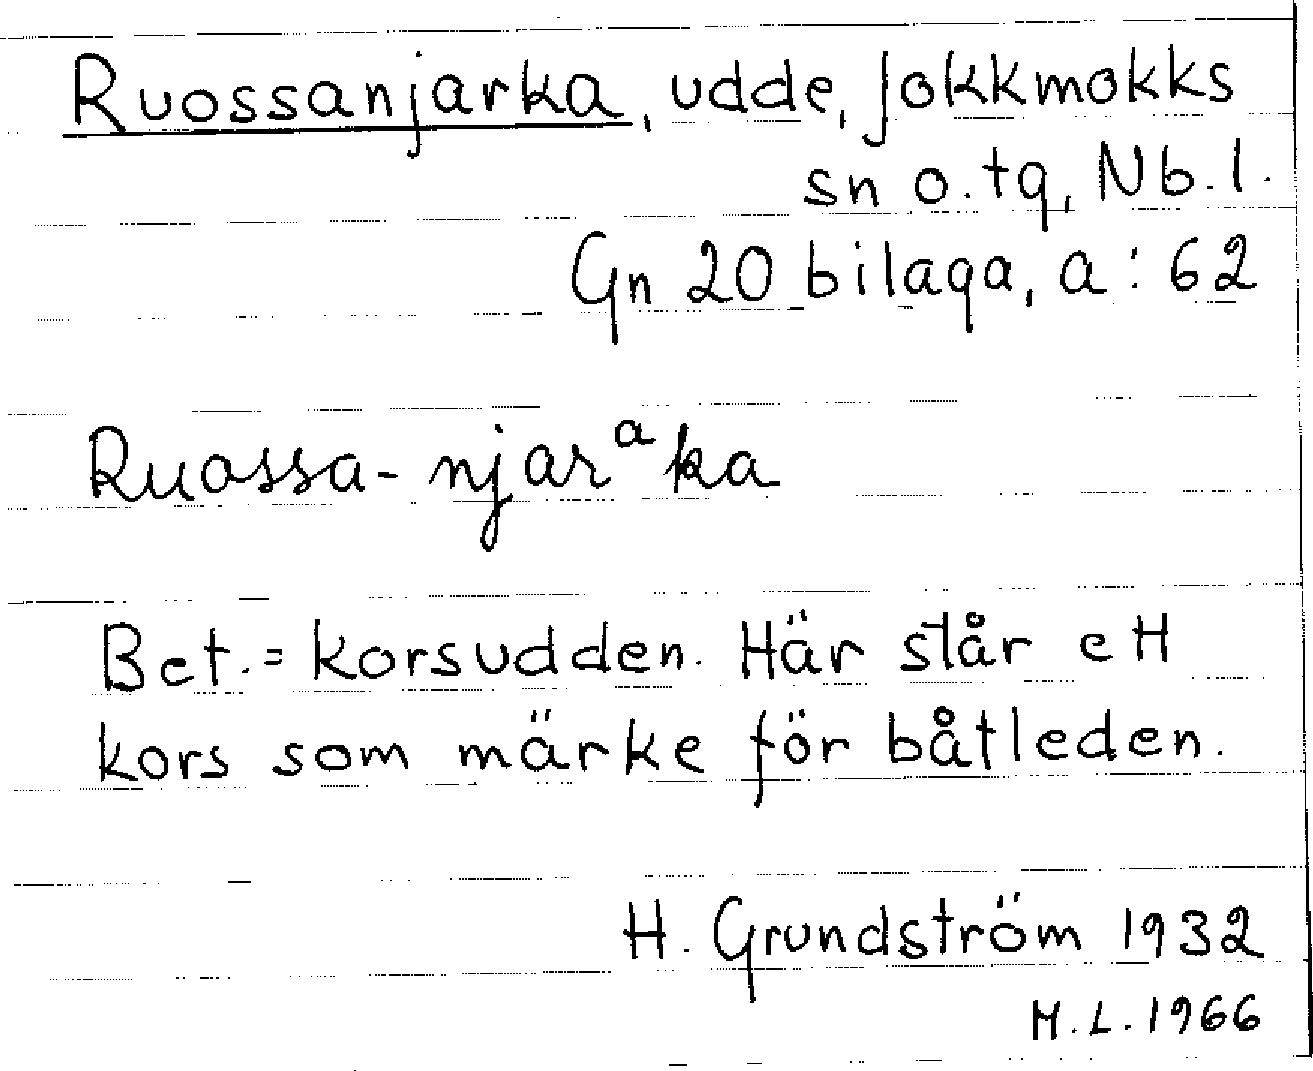 Ruossanjarka, udde, Jokkmokks
sn o. tg, Nb. l.
Gn 20 bilaga, a: 62
Ruossa-njarᵃka
Bet. = korsudden. Här står ett
kors som märke för båtleden.
H. Grundström 1932
M.L. 1966